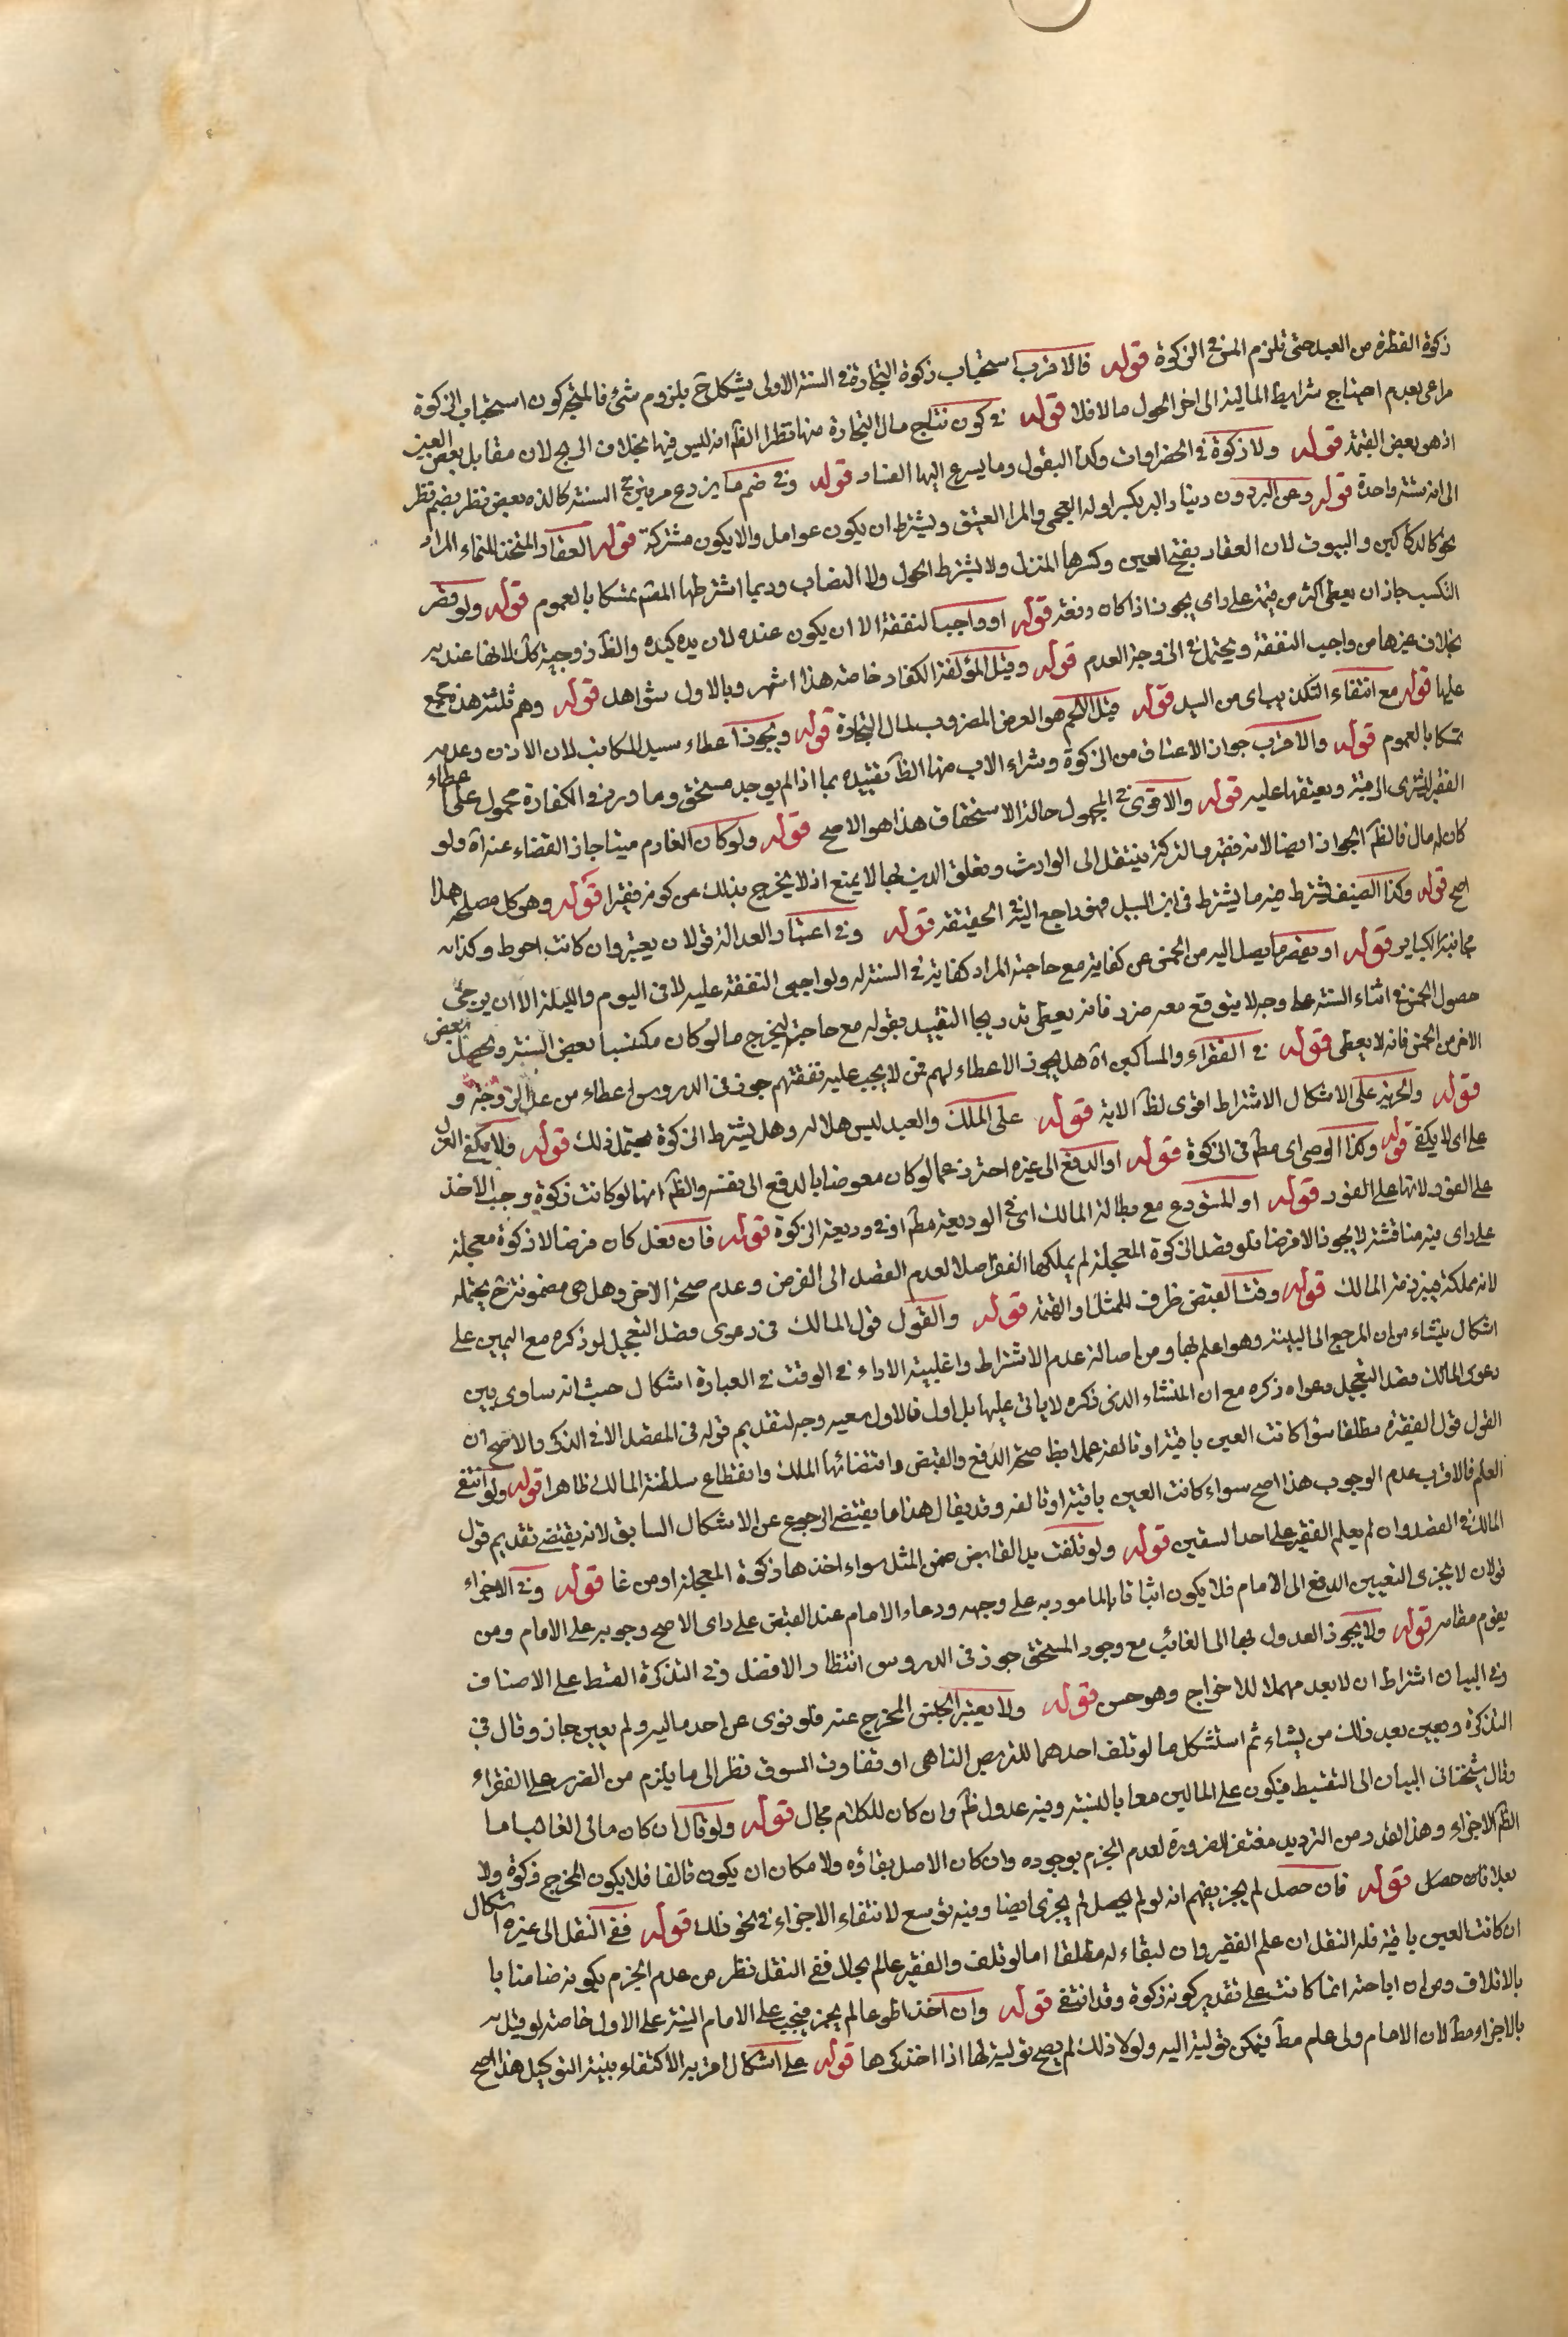 زكوة الفطرة من العبد حتى تلزم المن في الزكوة قوله فالاقرب استحباب زكوة التجارة في السنة الاولى يشكل ح بلزوم شئ فالمتجر كون استحباب الزكوة
مراعى بعدم اجتماع شرايط المالية الى اخر الحول مالا فلا قوله في كون نتاج مال التجارة منها نظر الظ انه ليس فيها بخلاف الربح لان مقابل بعض العين
اذ هو بعض القيمة قوله ولا زكوة في الخضراوات وكذا البقول وما يسرع اليها الفساد قوله وفي ضم ما يزرع مرتين في السنة كالذرة بعض نظر بضم نظر
الى انه سنة واحدة قوله وعن البرذون دينار البرذون بكسر اوله العجمى والمراد العتيق ويشترط ان يكون عوامل والا يكون مشتركة قوله العقار المتخذ للنماء المراد
نحو كالدكاكين والبيوت لان العقار بفتح العين وكسرها المنزل ولا يشترط الحول ولا النصاب وربما اشترطها المص تمسكا بالعموم قوله ولو قصر
التكسب جاز ان يعطى اكثر من قيمته على راى يجوز اذا كان دفعة قوله او واجب النفقة الا ان يكون عنده لان يده كيده والظ زوجية كك لانها عنديه
بخلاف غيرها من واجب النفقة ويحتمل في الزوجة العدم قوله وقيل المؤلفة الكفار خاصة هذا اشهر وبالاول شواهد قوله وهم ثلثة هذه تجمع
عليها قوله مع انتفاء التكذيب اى من السيد قوله قيل الحكم هو العرض المضروب لمال التجارة قوله ويجوز اعطاء سيد المكاتب لان الاذن وعدمه
تمسكا بالعموم قوله والاقرب جواز الاعتاق من الزكوة وشراء الاب منها الظ تقييده بما اذا لم يوجد مستحق وما ورد في الكفارة محمول على اعطاء
الفقير ليشترى الرقبة ويعتقها عليه قوله والاقوى في المجهول حاله الاستحقاق هذا هو الاصح قوله ولو كان الغارم ميتا جاز القضاء عنه اه ولو
كان له مال فالظ الجواز ايضا لانه فقير والتركة ينتقل الى الوارث وتعلق الدين بها لا يمنع اذ لا يخرج بذلك عن كونه فقيرا قوله وهو كل مصلحة هذا
اصح قوله وكذا الضيف يشترط فيه ما يشترط في ابن السبيل فهو راجع اليه في الحقيقة قوله وفي اعتبار العدالة قولان يعتبر وان كانت احوط وكذا
مجانبة الكباير قوله او يقصر ما يصل اليه من الخمس عن كفايته مع حاجته المراد كفايته في السنة له ولواجبى النفقة عليه لا في اليوم والليلة الا ان يرجى
حصول الخمس في اثناء السنة على وجه لا يتوقع معه ضرر فانه يعطى تدريجا التقييد بقوله مع حاجته ليخرج ما لو كان مكتسبا بعض السنة ويحصل البعض
الاخر من الخمس فانه لا يعطى قوله في الفقراء والمساكين اه هل يجوز الاعطاء لهم ممن لا يجب عليه نفقتهم جوز في الدروس اعطاء من عدا الزوجة و
قوله والحرية على الاشكال الاشتراط اقوى لظ الاية قوله على الملك والعبد ليس هلا له وهل يشترط الزكوة يحتمل ذلك قوله فلا يكفى العزل
على اى لا يكفى قوله وكذا الوصى اى مط في الزكوة قوله او الدفع الى غيره احترز عما لو كان معوضا بالدفع الى نفسه والظ انها لو كانت زكوة وجب الاخذ
على الفور لانها على الفور قوله او المستودع مع مطالبة المالك اى في الوديعة مط او في وديعة الزكوة قوله فان تعذر كان قرضا لا زكوة معجلة
على راى فيه مناقشة لا يجوز الا قرضا فلو قصد الزكوة المعجلة لم يملكها الفقير اصلا لعدم القصد الى القرض وعدم صحة الاخر وهل هى مضمونة ح يحتمله
لانه مملكة بغير ذمة المالك قوله وقت القبض ظرف للمثل او القيمة قوله والقول قول المالك في دعوى قصد التعجيل لو ذكره مع اليمين على
اشكال ينشاء من ان المرجع الى البينة وهو اعلم بها ومن اصالة عدم الاشتراط واغلبية الاداء في الوقت في العبارة اشكال حيث انه ساوى بين
دعوى المالك قصد التعجيل دعواه ذكره مع ان المنشاء الذى ذكره لا ياتى عليها بل اول فالاول معيه وجه لتقديم قوله في القصد الا في الذكر والاصح ان
القول قول الفقير مطلقا سواء كانت العين باقية او تالفة عملا بظ صحة الدفع والقبض واقتضائها الملك وانقطاع سلطنة المالك ظاهرا قوله ولو انتفى
العلم فالاقرب عدم الوجوب هذا اصح سواء كانت العين باقية او تالفة وقد يقال هذا ما يقتضى الرجوع عن الاشكال السابق لانه يقتضى تقديم قول
المالك في القصد وان لم يعلم الفقير على احد السقين قوله ولو تلفت بيد القابض ضمن المثل سواء اخذها زكوة المعجلة او من غا قوله وفي الاجزاء
قولان لا يجزى التعيين الدفع الى الامام فلا يكون اتيا بالمأمور به على وجهه ودعاء الامام عند القبض على راى الاصح وجوبه على الامام ومن
يقوم مقامه قوله ولا يجوز العدول بها الى الغائب مع وجود المستحق جوز في الدروس انتظار الافضل وفي التذكرة القسط على الاصناف
وفي البيان اشتراط ان لا يعد مهملا للاخراج وهو حسن قوله ولا يعتبر الجنس المخرج عنه فلو نوى عن احد ماليه ولم يعين جاز وقال في
التذكرة ويعين بعد ذلك من يشاء ثم استشكل ما لو تلف احدهما للتربص التناهى او تفاوت السوق نظر الى ما يلزم من الضرر على الفقراء
وقال شيخنا في البيان الى التقسيط فيكون على المالين معا بالنسبة وفيه عدول ظ وان كان للكلام مجال قوله ولو قال ان كان مالى الغائب اما
الظ الاجزاء وهذا القدر من الترديد مغتفر للضرورة لعدم الجزم بوجوده وان كان الاصل بقاؤه ولا مكان ان يكون تالفا فلا يكون المخرج زكوة ولا
بعد فان حصل قوله فان حصل لم يجز يفهم انه لو لم يحصل لم يجزى ايضا وفيه توسع لانتفاء الاجزاء في نحو ذلك قوله ففى النقل الى غيره اشكال
ان كانت العين باقية فله النقل ان علم الفقير وان لبقاء له مطلقا اما لو تلف والفقير عالم بحالا ففى النقل نظر من عدم الجزم بكونه ضامنا با
بالاتلاف ومن ان اباحته انما كانت على تقدير كونه زكوة وقد انتفى قوله وان اخذها طوعا لم يجز فيجب على الامام النية على الاول خاصة لو قيل به
بالاجزاء مط لان الامام ولى علم مط فيمكن توليته اليه ولولا ذلك لم يصح توليته لها اذا اخذ كرها قوله على اشكال اقربه الاكتفاء بنية التوكيل هذا اصح